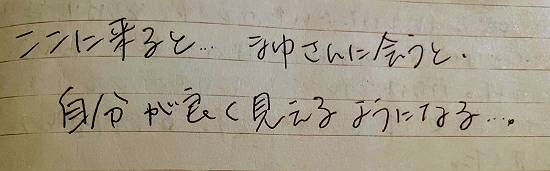 ここに来ると… まゆさんに会うと、
自分が良く見えるようになる…。